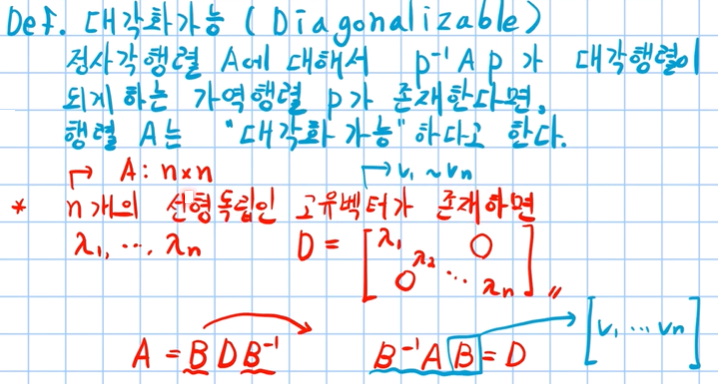 Def. 대각화가능 (Diagonalizable)
정사각행렬 A에 대해서 P⁻¹AP가 대각행렬이
되게 하는 가역행렬 P가 존재한다면,
행렬 A는 "대각화 가능"하다고 한다.
↱ A: n×n ↦ v₁ ~ vₙ
* n개의 선형독립인 고유벡터가 존재하면
λ₁, ⋯, λₙ D = [λ₁ 0 λ₂ 0 ⋯ λₙ] 〃
A = BDB⁻¹ B⁻¹AB = D [v₁ ⋯ vₙ]